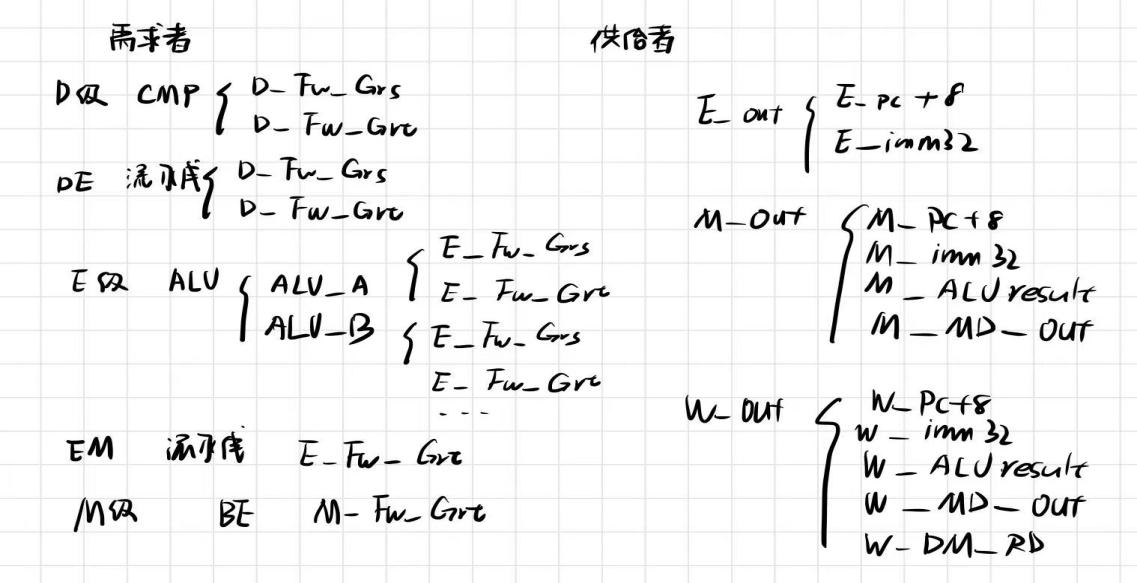 需求者
D级 CMP { D_Fw_Grs
D_Fw_Grt
DE 流水线 { D_Fw_Grs
D_Fw_Grt
E级 ALU { ALU_A { E_Fw_Grs
E_Fw_Grt
ALU_B { E_Fw_Grs
E_Fw_Grt
...
EM 流水线 E_Fw_Grt
M级 BE M_Fw_Grt
供给者
E_out { E_pc+8
E_imm32
M_out { M_PC+8
M_imm32
M_ALUresult
M_MD_out
W_out { W_PC+8
W_imm32
W_ALUresult
W_MD_out
W_DM_RD